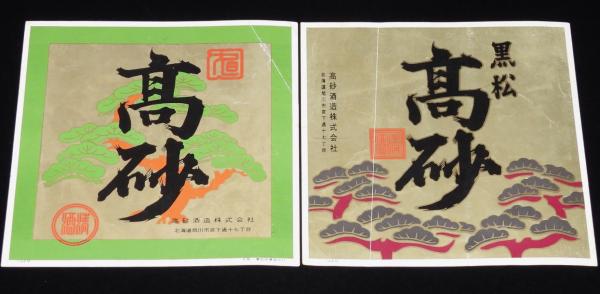 髙砂
高砂酒造株式会社
北海道旭川市宮下通十七丁目
黒松
髙砂
高砂酒造株式会社
北海道旭川市宮下通十七丁目